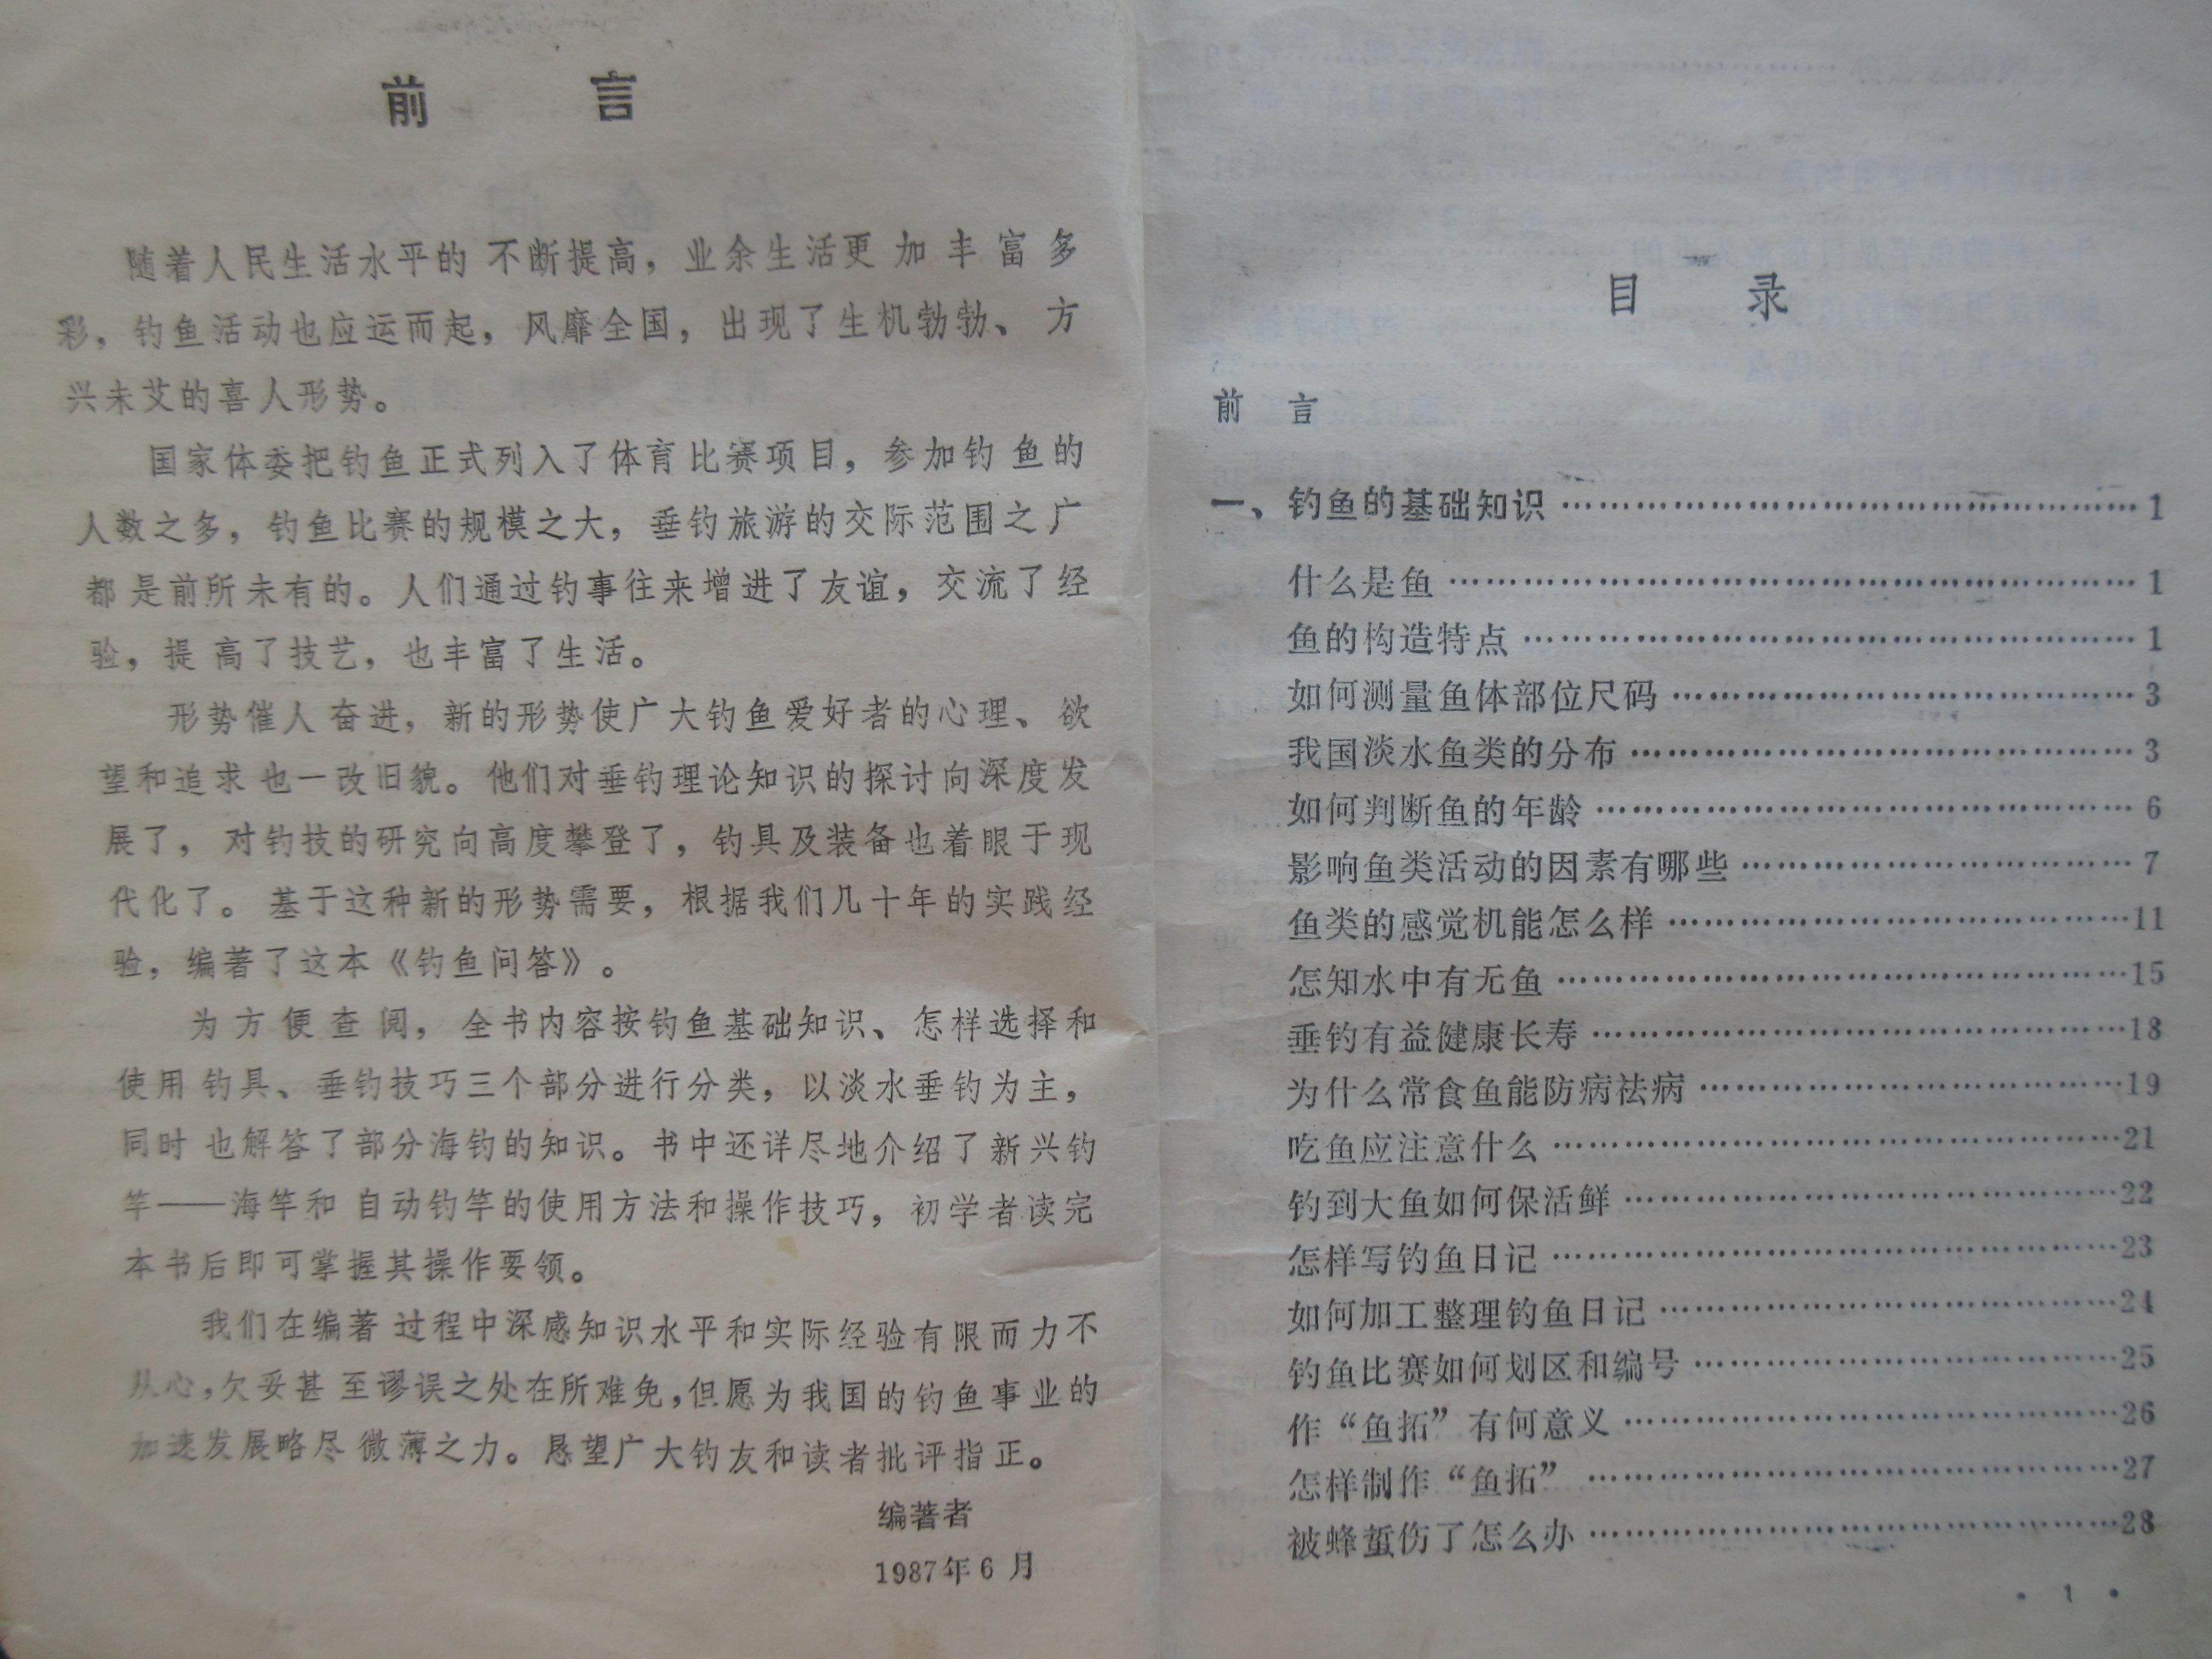 前言
随着人民生活水平的不断提高，业余生活更加丰富多
彩，钓鱼活动也应运而起，风靡全国，出现了生机勃勃、方
兴未艾的喜人形势。
国家体委把钓鱼正式列入了体育比赛项目，参加钓鱼的
人数之多，钓鱼比赛的规模之大，垂钓旅游的交际范围之广
都是前所未有的。人们通过钓事往来增进了友谊，交流了经
验，提高了技艺，也丰富了生活。
形势催人奋进，新的形势使广大钓鱼爱好者的心理、欲
望和追求也一改旧貌。他们对垂钓理论知识的探讨向深度发
展了，对钓技的研究向高度攀登了，钓具及装备也着眼于现
代化了。基于这种新的形势需要，根据我们几十年的实践经
验，编著了这本《钓鱼问答》。
为方便查阅，全书内容按钓鱼基础知识、怎样选择和
使用钓具、垂钓技巧三个部分进行分类，以淡水垂钓为主，
同时也解答了部分海钓的知识。书中还详尽地介绍了新兴钓
竿——海竿和自动钓竿的使用方法和操作技巧，初学者读完
本书后即可掌握其操作要领。
我们在编著过程中深感知识水平和实际经验有限而力不
从心，欠妥甚至谬误之处在所难免，但愿为我国的钓鱼事业的
加速发展略尽微薄之力。恳望广大钓友和读者批评指正。
编著者
1987年6月
目录
前言
一、钓鱼的基础知识……………………………………1
什么是鱼……………………………………1
鱼的构造特点……………………………………1
如何测量鱼体部位尺码……………………………………3
我国淡水鱼类的分布……………………………………3
如何判断鱼的年龄……………………………………6
影响鱼类活动的因素有哪些……………………………………7
鱼类的感觉机能怎么样……………………………………11
怎知水中有无鱼……………………………………15
垂钓有益健康长寿……………………………………18
为什么常食鱼能防病祛病……………………………………19
吃鱼应注意什么……………………………………21
钓到大鱼如何保活鲜……………………………………22
怎样写钓鱼日记……………………………………23
如何加工整理钓鱼日记……………………………………24
钓鱼比赛如何划区和编号……………………………………25
作“鱼拓”有何意义……………………………………26
怎样制作“鱼拓”……………………………………27
被蜂蜇伤了怎么办……………………………………28
·1·